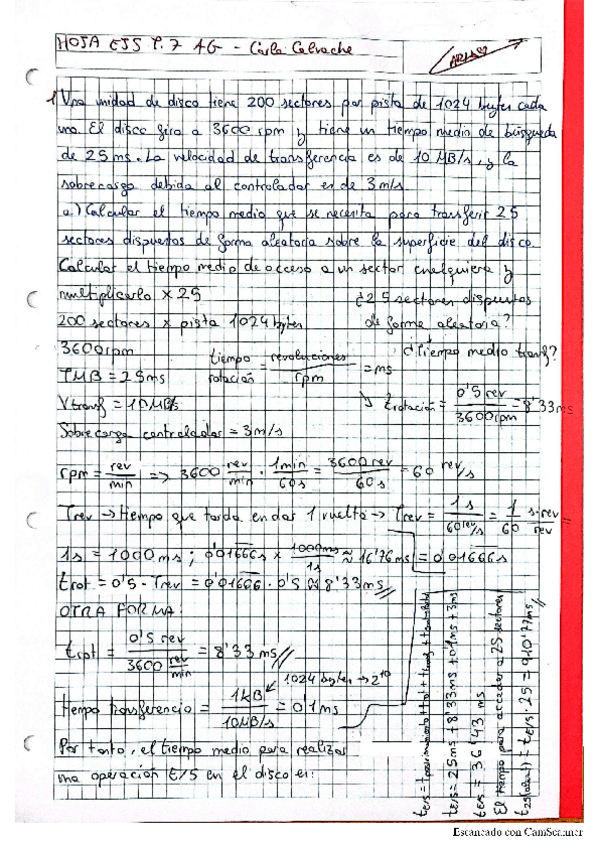 HOJA EJS T.7 AG - Carla Calvache
1 Una unidad de disco tiene 200 sectores por pista de 1024 bytes cada
uno. El disco gira a 3600 rpm y tiene un tiempo medio de búsqueda
de 25 ms. La velocidad de transferencia es de 10 MB/s, y la
sobrecarga debida al controlador es de 3 m/s.
a) Calcular el tiempo medio que se necesita para transferir 25
sectores dispuestos de forma aleatoria sobre la superficie del disco.
Calcular el tiempo medio de acceso a un sector cualquiera y
multiplicarlo x 25
¿25 sectores dispuestos
de forma aleatoria?
200 sectores x pista 1024 bytes
3600 rpm
¿Tiempo medio transf?
TMB = 25ms
tiempo rotación = revoluciones / rpm = ms
Vtransf = 10MB/s
↳ trotación = 0'5 rev / 3600rpm = 8'33ms
Sobrecarga controlador = 3m/s
rpm = rev/min => 3600 rev/min · 1min/60s = 3600 rev/60s = 60 rev/s
Trev → tiempo que tarda en dar 1 vuelta → Trev = 1s / 60rev/s = 1/60 s·rev/rev =
1s = 1000ms ; 0'01666s x 1000ms/1s ≈ 16'76ms = 0'01666s
trot = 0'5 · Trev = 0'01666 · 0'5 ≈ 8'33ms //
OTRA FORMA:
trot = 0'5 rev / 3600 rev/min = 8'33 ms //
1024 bytes → 2^10
tiempo transferencia = 1KB / 10MB/s = 0'1ms
Por tanto, el tiempo medio para realizar
una operación E/S en el disco es:
tE/S = 25ms + 8'33ms + 0'1ms + 3ms
tE/S = 36'43 ms
El tiempo para acceder a 25 sectores
= tE/S · 25 = 910'77ms //
Escaneado con CamScanner